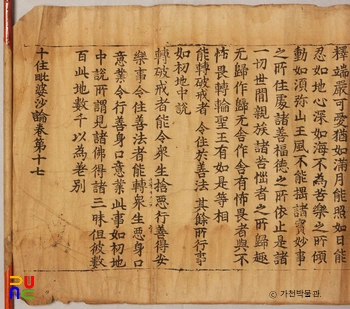 釋端嚴可愛猶如滿月能照如日能
忍如地心深如海不為苦樂之所傾
動如須弥山王風不能揺諸寶妙事
之所住處諸善福德之所依止是諸
一切世間親族諸苦惱者之所歸趣
无歸作歸无舍作舍有怖畏者與不
怖畏轉輪聖王有如是等相
能轉破戒者 令住於善法 其餘所行事
如初地中說
轉破戒者能令衆生捨惡行善得安
樂事令住善法者能轉衆生惡身口
意業令行善身口意業此事如初地
中說所謂見諸佛得諸三昧但彼數
百此地數千以為差别
十住毗婆沙論卷第十七
ⓒ 가천박물관